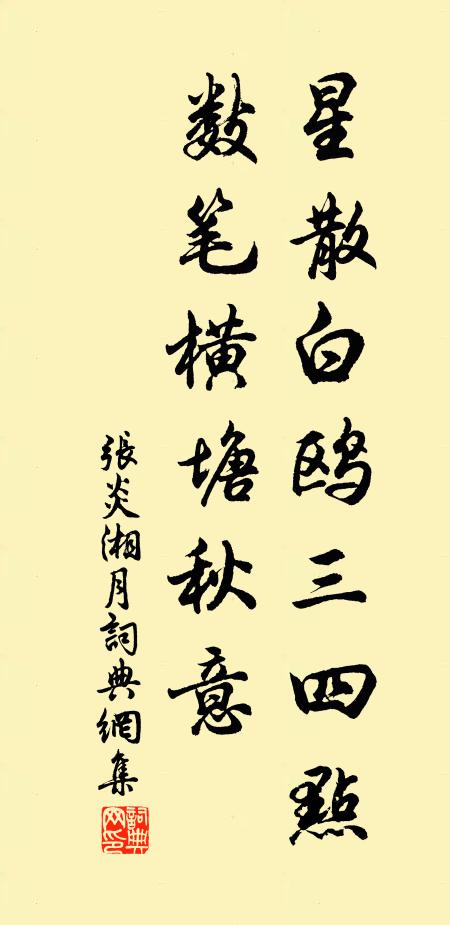 星散白鸥三四點
数笔横塘秋意
張炎湘月詞典網集
詞典网印